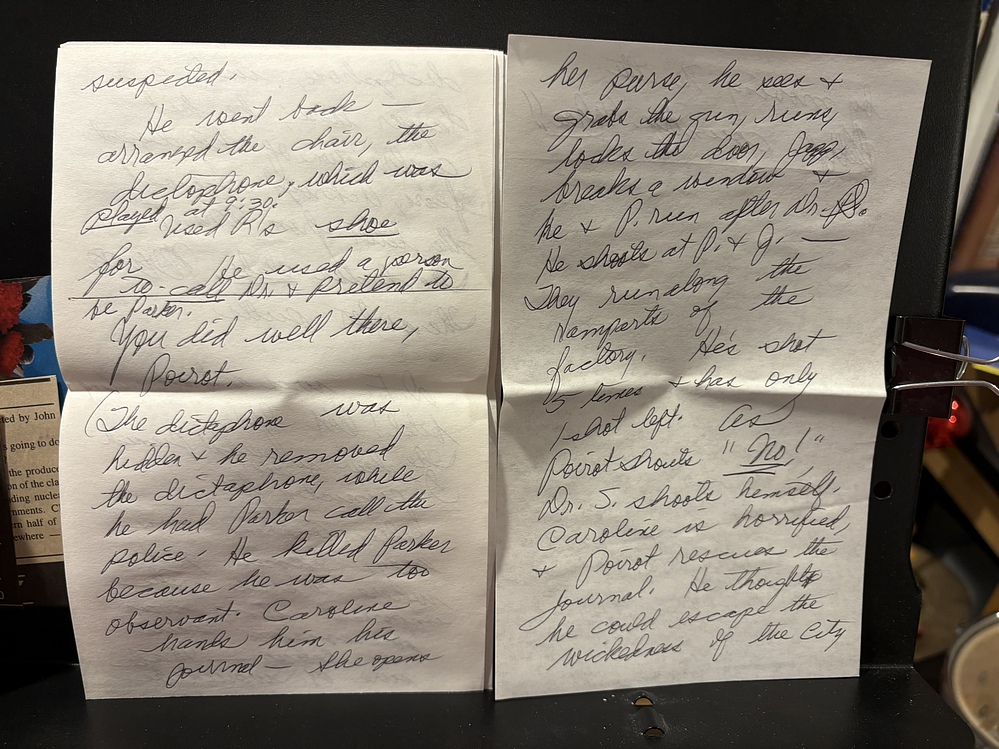 suspected.
He went back —
arranged the chair, the
dictophrone, which was
played at 9:30.
Used R's shoe
for He used a person
to call Dr. & pretend to
be Parker.
You did well there,
Poirot.
(The dictaphone was
hidden & he removed
the dictaphone, while
he had Parker call the
police. He killed Parker
because he was too
observant. Caroline
hands him his
journal — She opens
her purse, he sees &
grabs the gun, runs,
locks the door, Japp,
breaks a window &
he & P. run after Dr. S.
He shoots at P. & J. —
They run along the
ramparts of the
factory. He's shot
5 times & has only
1 shot left. As
Poirot shouts "No!"
Dr. S. shoots himself.
Caroline is horrified,
& Poirot rescues the
journal. He thought
he could escape the
wickedness of the City
ted by John
s going to do
the produce
on of the cla
ding nucle
nments. C
rn half of
ewhere —